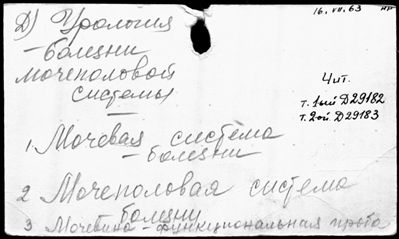 16.VII.63
Д) Урология
– болезни
мочеполовой
системы
Чит.
т. 1ый Д29182
т. 2ой Д29183
1 Мочевая система
– болезни
2 Мочеполовая система
болезни
3 Мочевина – функциональная проба